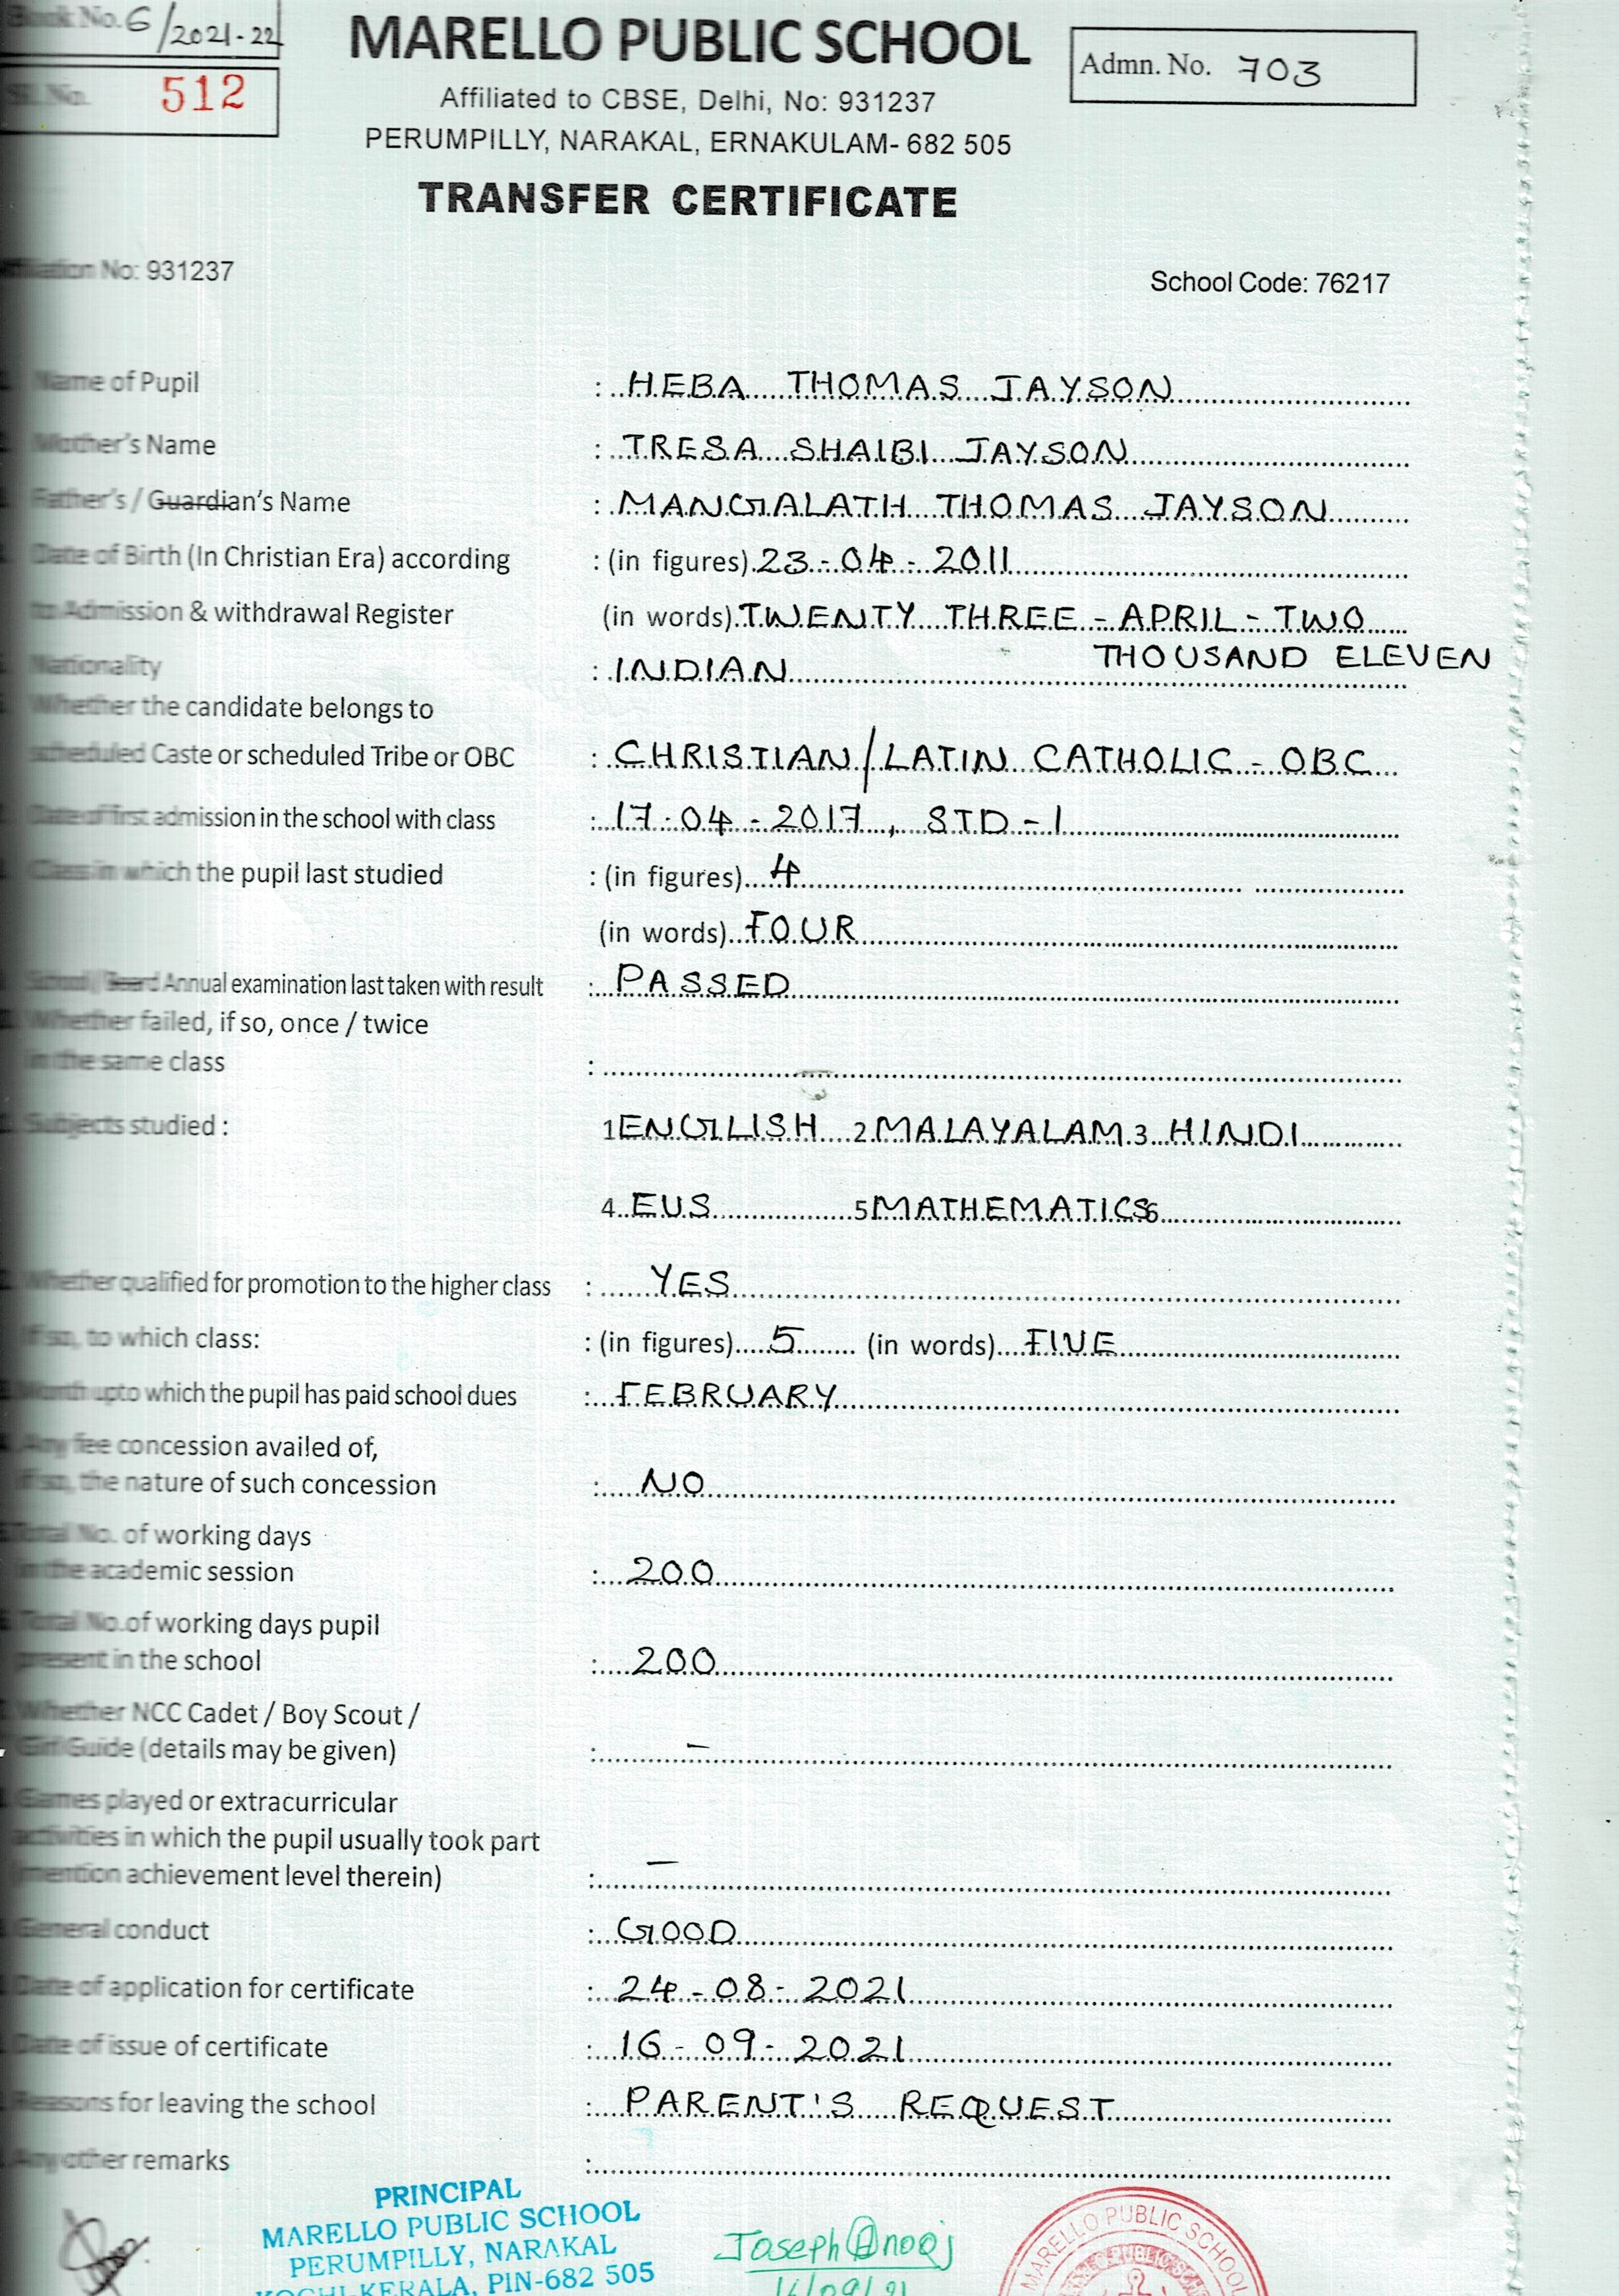 Book No. 6/2021-22
Sl. No. 512
MARELLO PUBLIC SCHOOL
Admn. No. 703
Affiliated to CBSE, Delhi, No: 931237
PERUMPILLY, NARAKAL, ERNAKULAM- 682 505
TRANSFER CERTIFICATE
Affiliation No: 931237 School Code: 76217
Name of Pupil : HEBA THOMAS JAYSON
Mother's Name : TRESA SHAIBI JAYSON
Father's / Guardian's Name : MANGALATH THOMAS JAYSON
Date of Birth (In Christian Era) according : (in figures) 23-04-2011
to Admission & withdrawal Register (in words) TWENTY THREE - APRIL - TWO
THOUSAND ELEVEN
Nationality : INDIAN
Whether the candidate belongs to
scheduled Caste or scheduled Tribe or OBC : CHRISTIAN/LATIN CATHOLIC - OBC
Date of first admission in the school with class : 17-04-2017, STD-1
Class in which the pupil last studied : (in figures) 4
(in words) FOUR
School / Board Annual examination last taken with result : PASSED
Whether failed, if so, once / twice
in the same class :
Subjects studied : 1 ENGLISH 2 MALAYALAM 3 HINDI
4 EUS 5 MATHEMATICS 6
Whether qualified for promotion to the higher class : YES
If so, to which class: : (in figures) 5 (in words) FIVE
Month upto which the pupil has paid school dues : FEBRUARY
Any fee concession availed of,
if so, the nature of such concession : NO
Total No. of working days
in the academic session : 200
Total No.of working days pupil
present in the school : 200
Whether NCC Cadet / Boy Scout /
Girl Guide (details may be given) : –
Games played or extracurricular
activities in which the pupil usually took part
(mention achievement level therein) : –
General conduct : GOOD
Date of application for certificate : 24-08-2021
Date of issue of certificate : 16-09-2021
Reasons for leaving the school : PARENT'S REQUEST
Any other remarks :
PRINCIPAL
MARELLO PUBLIC SCHOOL
PERUMPILLY, NARAKAL
KOCHI KERALA, PIN-682 505
Joseph
MARELLO PUBLIC SCHOOL